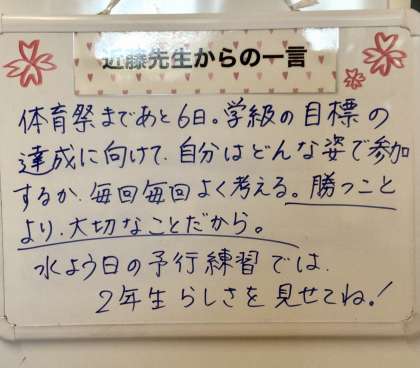 近藤先生からの一言
体育祭まであと6日。学級の目標の
達成に向けて、自分はどんな姿で参加
するか、毎回毎回よく考える。勝つこと
より、大切なことだから。
水よう日の予行練習では、
2年生らしさを見せてね!